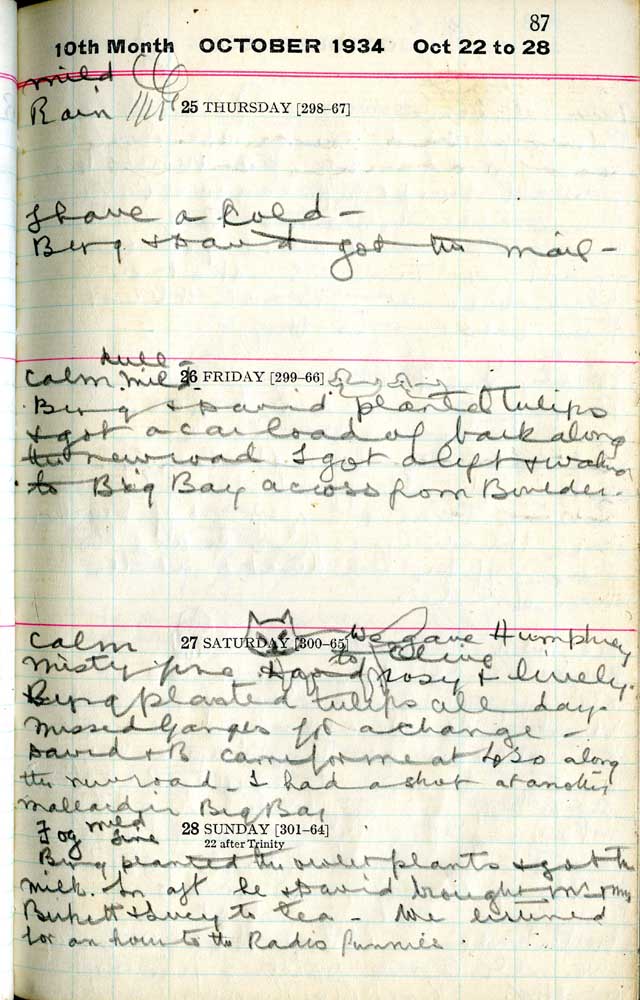 87
10th Month OCTOBER 1934 Oct 22 to 28
mild
Rain 25 THURSDAY [298–67]
I have a kold –
Berg + David got the mail –
dull –
Calm mild 26 FRIDAY [299–66]
Berg + David planted tulips
+ got a car load of bark along
the new road I got a lift + walked
to Big Bay across from Boulder.
Calm 27 SATURDAY [300–65] We gave Humphrey
Misty fine to Olive
David rosy + lively.
Berg planted tulips all day.
Missed Ganges for a change –
David + B came for me at along
the new road – I had a shot at another
mallard in Big Bay
Fog mild fine 28 SUNDAY [301–64]
22 after Trinity
Berg planted the plants + got the
milk. In aft he + David brought Mr + Mrs
Birkett + Lucy to tea – We listened
for an hour to the Radio funnies.